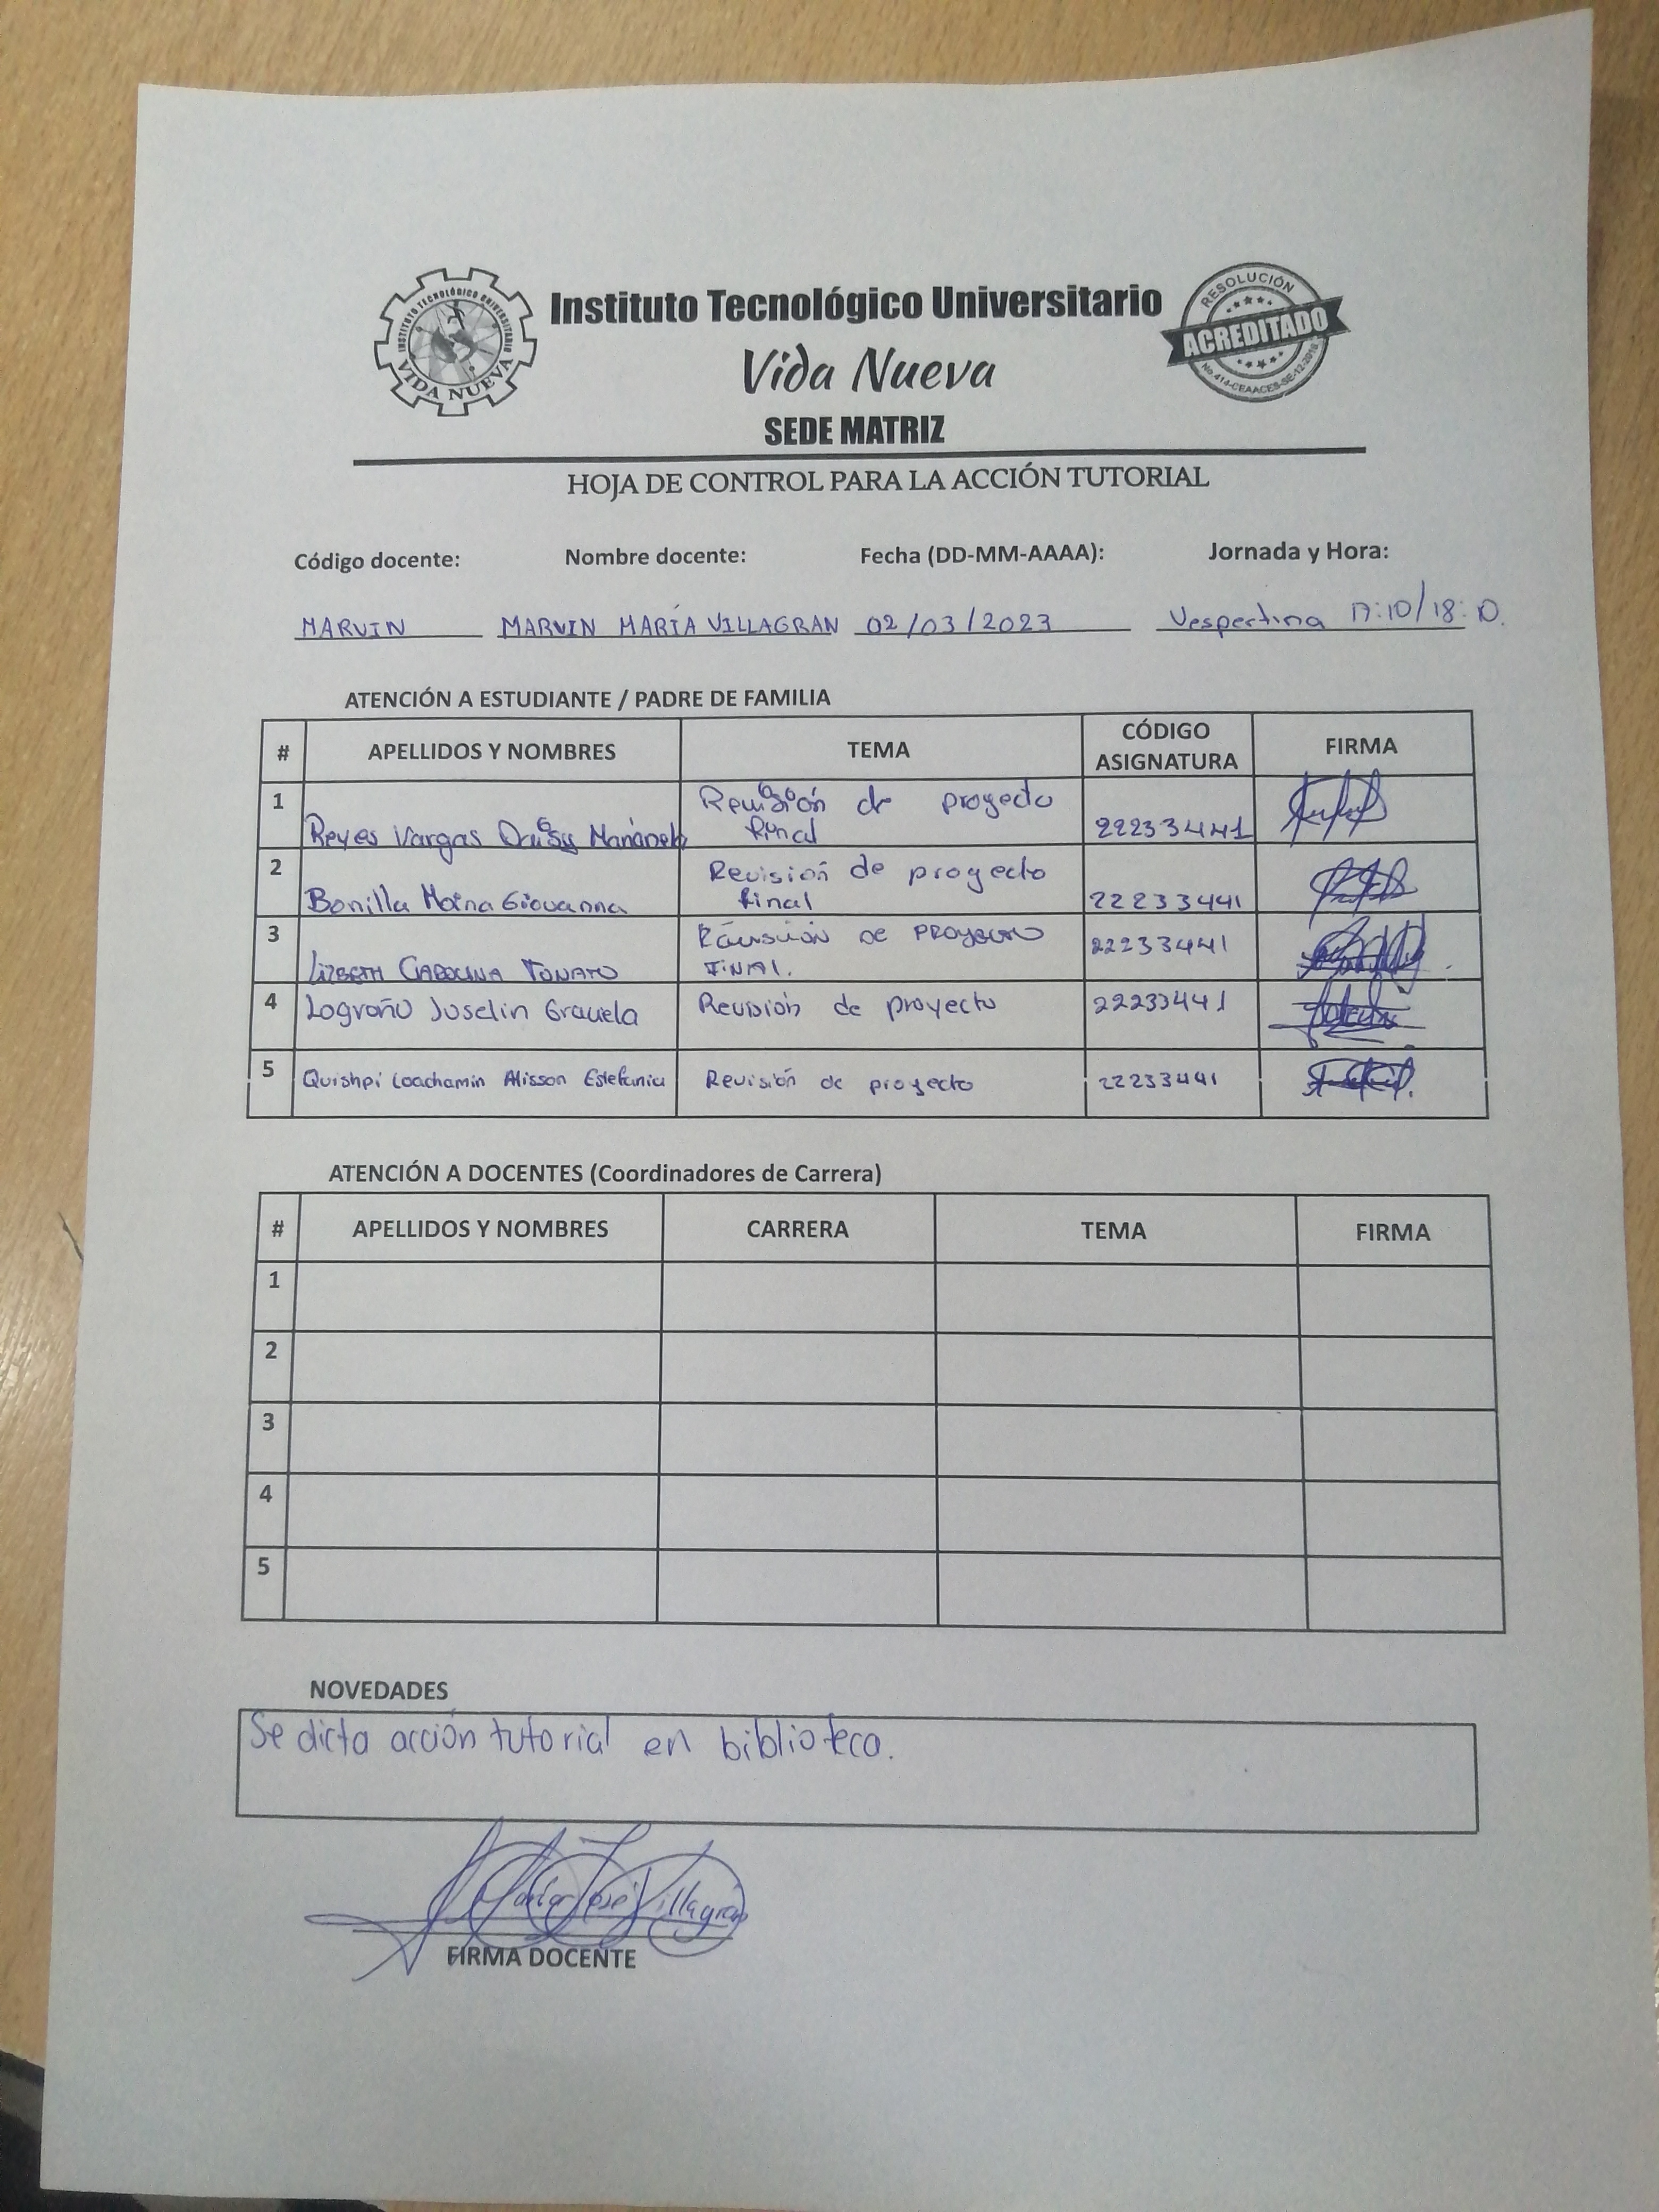 INSTITUTO TECNOLÓGICO UNIVERSITARIO
VIDA NUEVA
Instituto Tecnológico Universitario
Vida Nueva
SEDE MATRIZ
RESOLUCIÓN
ACREDITADO
No.414-CEAACES-SE-12-2016
HOJA DE CONTROL PARA LA ACCIÓN TUTORIAL
Código docente: Nombre docente: Fecha (DD-MM-AAAA): Jornada y Hora:
MARVIN MARVIN MARÍA VILLAGRAN 02/03/2023 Vespertina 17:10/18:10.
ATENCIÓN A ESTUDIANTE / PADRE DE FAMILIA
# APELLIDOS Y NOMBRES TEMA CÓDIGO ASIGNATURA FIRMA
1 Reyes Vargas Daisy Revisión de proyecto final 22233441
2 Bonilla Giovanna Revisión de proyecto final 22233441
3 LIZBETH CAROLINA TONATO REVISIÓN DE PROYECTO FINAL. 22233441
4 Logroño Joselin Graciela Revisión de proyecto 22233441
5 Quishpi Loachamin Alisson Estefania Revisión de proyecto 22233441
ATENCIÓN A DOCENTES (Coordinadores de Carrera)
# APELLIDOS Y NOMBRES CARRERA TEMA FIRMA
1
2
3
4
5
NOVEDADES
Se dicta acción tutorial en biblioteca.
María José Villagrán
FIRMA DOCENTE